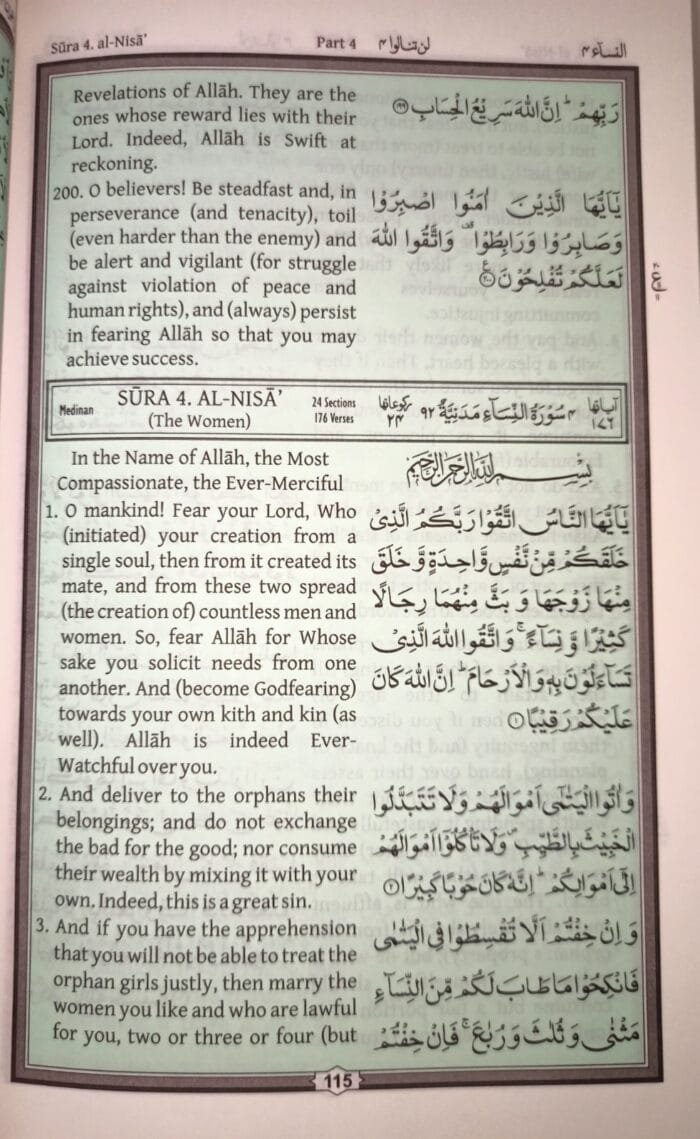 Sūra 4. al-Nisā’
Part 4
لن تنالوا ۴
النسآء ۴
Revelations of Allāh. They are the
ones whose reward lies with their
Lord. Indeed, Allāh is Swift at
reckoning.
200. O believers! Be steadfast and, in
perseverance (and tenacity), toil
(even harder than the enemy) and
be alert and vigilant (for struggle
against violation of peace and
human rights), and (always) persist
in fearing Allāh so that you may
achieve success.
رَبِّهِمْ ؕ اِنَّ اللّٰهَ سَرِيْعُ الْحِسَابِ ۝۱۹۹
يٰۤاَيُّهَا الَّذِيْنَ اٰمَنُوا اصْبِرُوْا
وَصَابِرُوْا وَرَابِطُوْا ۟ وَاتَّقُوا اللّٰهَ
لَعَلَّكُمْ تُفْلِحُوْنَ ۝۲۰۰
Medinan
SŪRA 4. AL-NISĀ’
(The Women)
24 Sections
176 Verses
رکوعاتها
۲۴
۴ سُوْرَةُ النِّسَآءِ مَدَنِيَّةٌ ۹۲
آياتها
۱۷۶
In the Name of Allāh, the Most
Compassionate, the Ever-Merciful
بِسْمِ اللّٰهِ الرَّحْمٰنِ الرَّحِيْمِ
1. O mankind! Fear your Lord, Who
(initiated) your creation from a
single soul, then from it created its
mate, and from these two spread
(the creation of) countless men and
women. So, fear Allāh for Whose
sake you solicit needs from one
another. And (become Godfearing)
towards your own kith and kin (as
well). Allāh is indeed Ever-
Watchful over you.
يٰۤاَيُّهَا النَّاسُ اتَّقُوْا رَبَّكُمُ الَّذِيْ
خَلَقَكُمْ مِّنْ نَّفْسٍ وَّاحِدَةٍ وَّ خَلَقَ
مِنْهَا زَوْجَهَا وَ بَثَّ مِنْهُمَا رِجَالًا
كَثِيْرًا وَّ نِسَآءً ۚ وَ اتَّقُوا اللّٰهَ الَّذِيْ
تَسَآءَلُوْنَ بِهٖ وَ الْاَرْحَامَ ؕ اِنَّ اللّٰهَ كَانَ
عَلَيْكُمْ رَقِيْبًا ۝۱
2. And deliver to the orphans their
belongings; and do not exchange
the bad for the good; nor consume
their wealth by mixing it with your
own. Indeed, this is a great sin.
وَ اٰتُوا الْيَتٰمٰۤى اَمْوَالَهُمْ وَ لَا تَتَبَدَّلُوا
الْخَبِيْثَ بِالطَّيِّبِ ۪ وَ لَا تَاْكُلُوْۤا اَمْوَالَهُمْ
اِلٰۤى اَمْوَالِكُمْ ؕ اِنَّهٗ كَانَ حُوْبًا كَبِيْرًا ۝۲
3. And if you have the apprehension
that you will not be able to treat the
orphan girls justly, then marry the
women you like and who are lawful
for you, two or three or four (but
وَ اِنْ خِفْتُمْ اَلَّا تُقْسِطُوْا فِي الْيَتٰمٰى
فَانْكِحُوْا مَا طَابَ لَكُمْ مِّنَ النِّسَآءِ
مَثْنٰى وَ ثُلٰثَ وَ رُبٰعَ ۚ فَاِنْ خِفْتُمْ
115